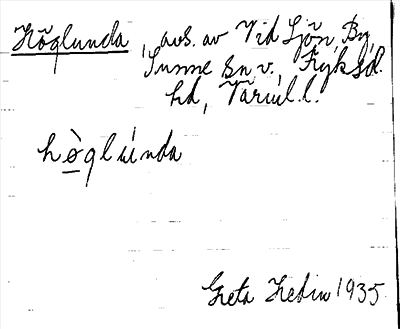 Höglunda, avs. av Vid Sjön, By,
Sunne sn v., Fryksd.
hd, Värml. l.
hò̲glúnda
Greta Hedin 1935